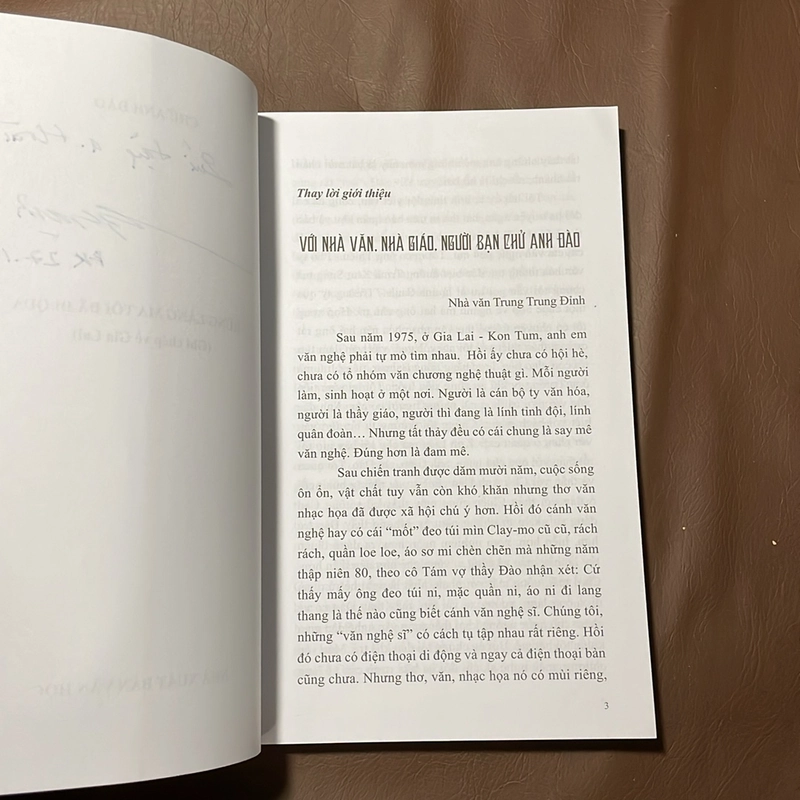 Thay lời giới thiệu
VỚI NHÀ VĂN, NHÀ GIÁO, NGƯỜI BẠN CHỬ ANH ĐÀO
Nhà văn Trung Trung Đỉnh
Sau năm 1975, ở Gia Lai - Kon Tum, anh em
văn nghệ phải tự mò tìm nhau. Hồi ấy chưa có hội hè,
chưa có tổ nhóm văn chương nghệ thuật gì. Mỗi người
làm, sinh hoạt ở một nơi. Người là cán bộ ty văn hóa,
người là thầy giáo, người thì đang là lính tỉnh đội, lính
quân đoàn… Nhưng tất thảy đều có cái chung là say mê
văn nghệ. Đúng hơn là đam mê.
Sau chiến tranh được dăm mười năm, cuộc sống
ôn ổn, vật chất tuy vẫn còn khó khăn nhưng thơ văn
nhạc họa đã được xã hội chú ý hơn. Hồi đó cánh văn
nghệ hay có cái “mốt” đeo túi mìn Clay-mo cũ cũ, rách
rách, quần loe loe, áo sơ mi chèn chẽn mà những năm
thập niên 80, theo cô Tám vợ thầy Đào nhận xét: Cứ
thấy mấy ông đeo túi ni, mặc quần ni, áo ni đi lang
thang là thế nào cũng biết cánh văn nghệ sĩ. Chúng tôi,
những “văn nghệ sĩ” có cách tụ tập nhau rất riêng. Hồi
đó chưa có điện thoại di động và ngay cả điện thoại bàn
cũng chưa. Nhưng thơ, văn, nhạc họa nó có mùi riêng,
3